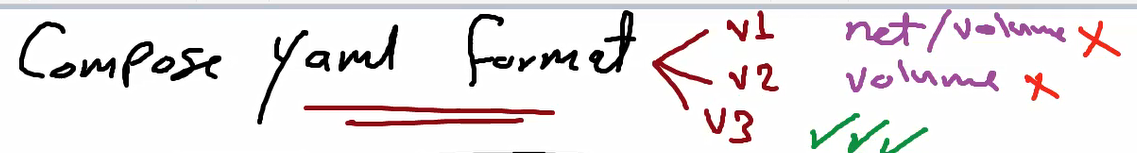 Compose yaml format
v1 net/volume ×
v2 volume ×
v3 ✓✓✓